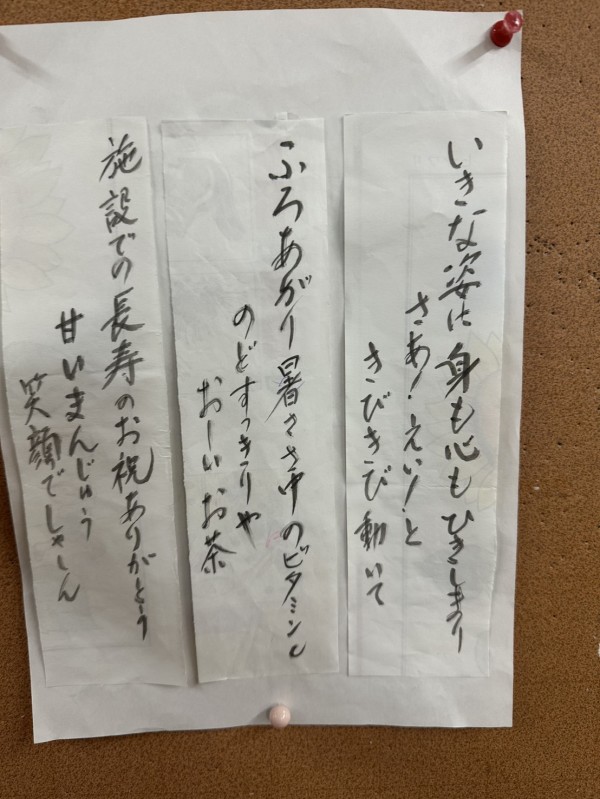 いきな姿は身も心もひきしまり
さあ！えい！と
きびきび動いて
ふろあがり暑さ中のビタミンC
のどすっきりや
おーいお茶
施設での長寿のお祝ありがとう
甘いまんじゅう
笑顔でしゃしん